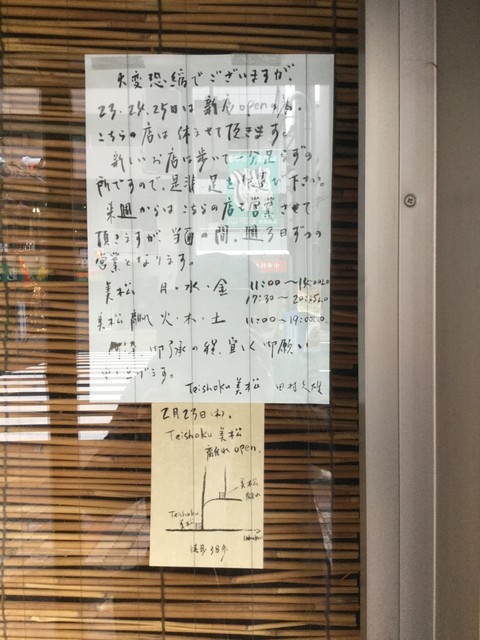 大変恐縮でございますが、
23.24.25日は新店openの為、
こちらの店は休ませて頂きます。
新しいお店は歩いて一分足らずの
所ですので、是非足を下さい。
来週からはこちらの店も営業させて
頂きますが、当面の間、週3日ずつの
営業となります。
美松 月・水・金 11:00〜
17:30〜
美松 離れ 火・木・土 11:00〜19:00
御了承の程、宜しく御願い
申し上げます。
Teishoku 美松 田村久雄
2月23日(木).
Teishoku 美松
離れ open.
美松
離れ
Teishoku
美松
徒歩38歩